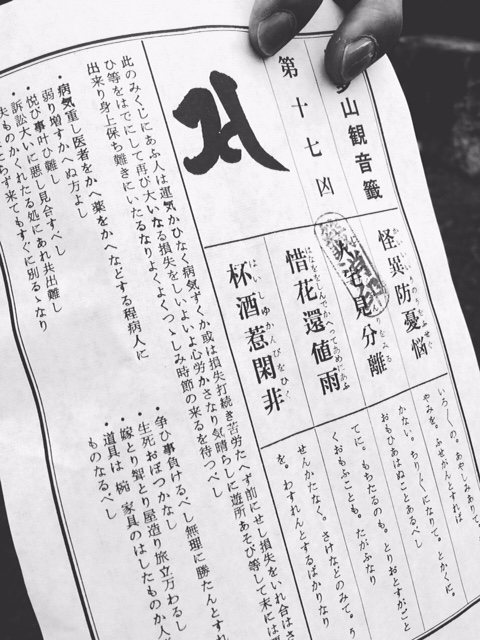 山観音籤
第十七凶
怪異防憂悩
かいいゆうのうをふせぐ
宅見分離
惜花還値雨
はなをおしんでかへってあめにあふ
杯酒惹閑非
はいしゆかんぴをひく
いろ〱の。あやしみありて。
やみを。ふせがんとすれば
かない。ちり〲になりて。とかくに。
おもひあはぬことあるべし
てに。もちたるのも。とりおとすがごと
くおもふことも。たがふなり
せんかたなく。さけなどのみて。
を。わすれんとするばかりなり
此のみくじにあふ人は運気かひなく病気ずくか或は損失打続き苦労たへず前にせし損失をいれ合はさ
ひ等をはでにして再び大いなる損失をしいよいよ心労かさなり気晴らしに遊所あそび等して末には
出来り身上保ち難きにいたるなりよくよくつゝしみ時節の来るを待つべし
・病気重し医者をかへ薬をかへなどする程病人に
弱り増すかへぬ方よし
・悦び事叶ひ難し
・訴訟大いに悪し見合すべし
・失ものかくれたる処にあれ共出難し
来てもすぐに別るゝなり
・争ひ事負けるべし無理に勝たんとすれ
・生死おぼつかなし
・嫁とり聟とり屋造り旅立万わるし
・道具は椀家具のはしたもの か人
ものなるべし